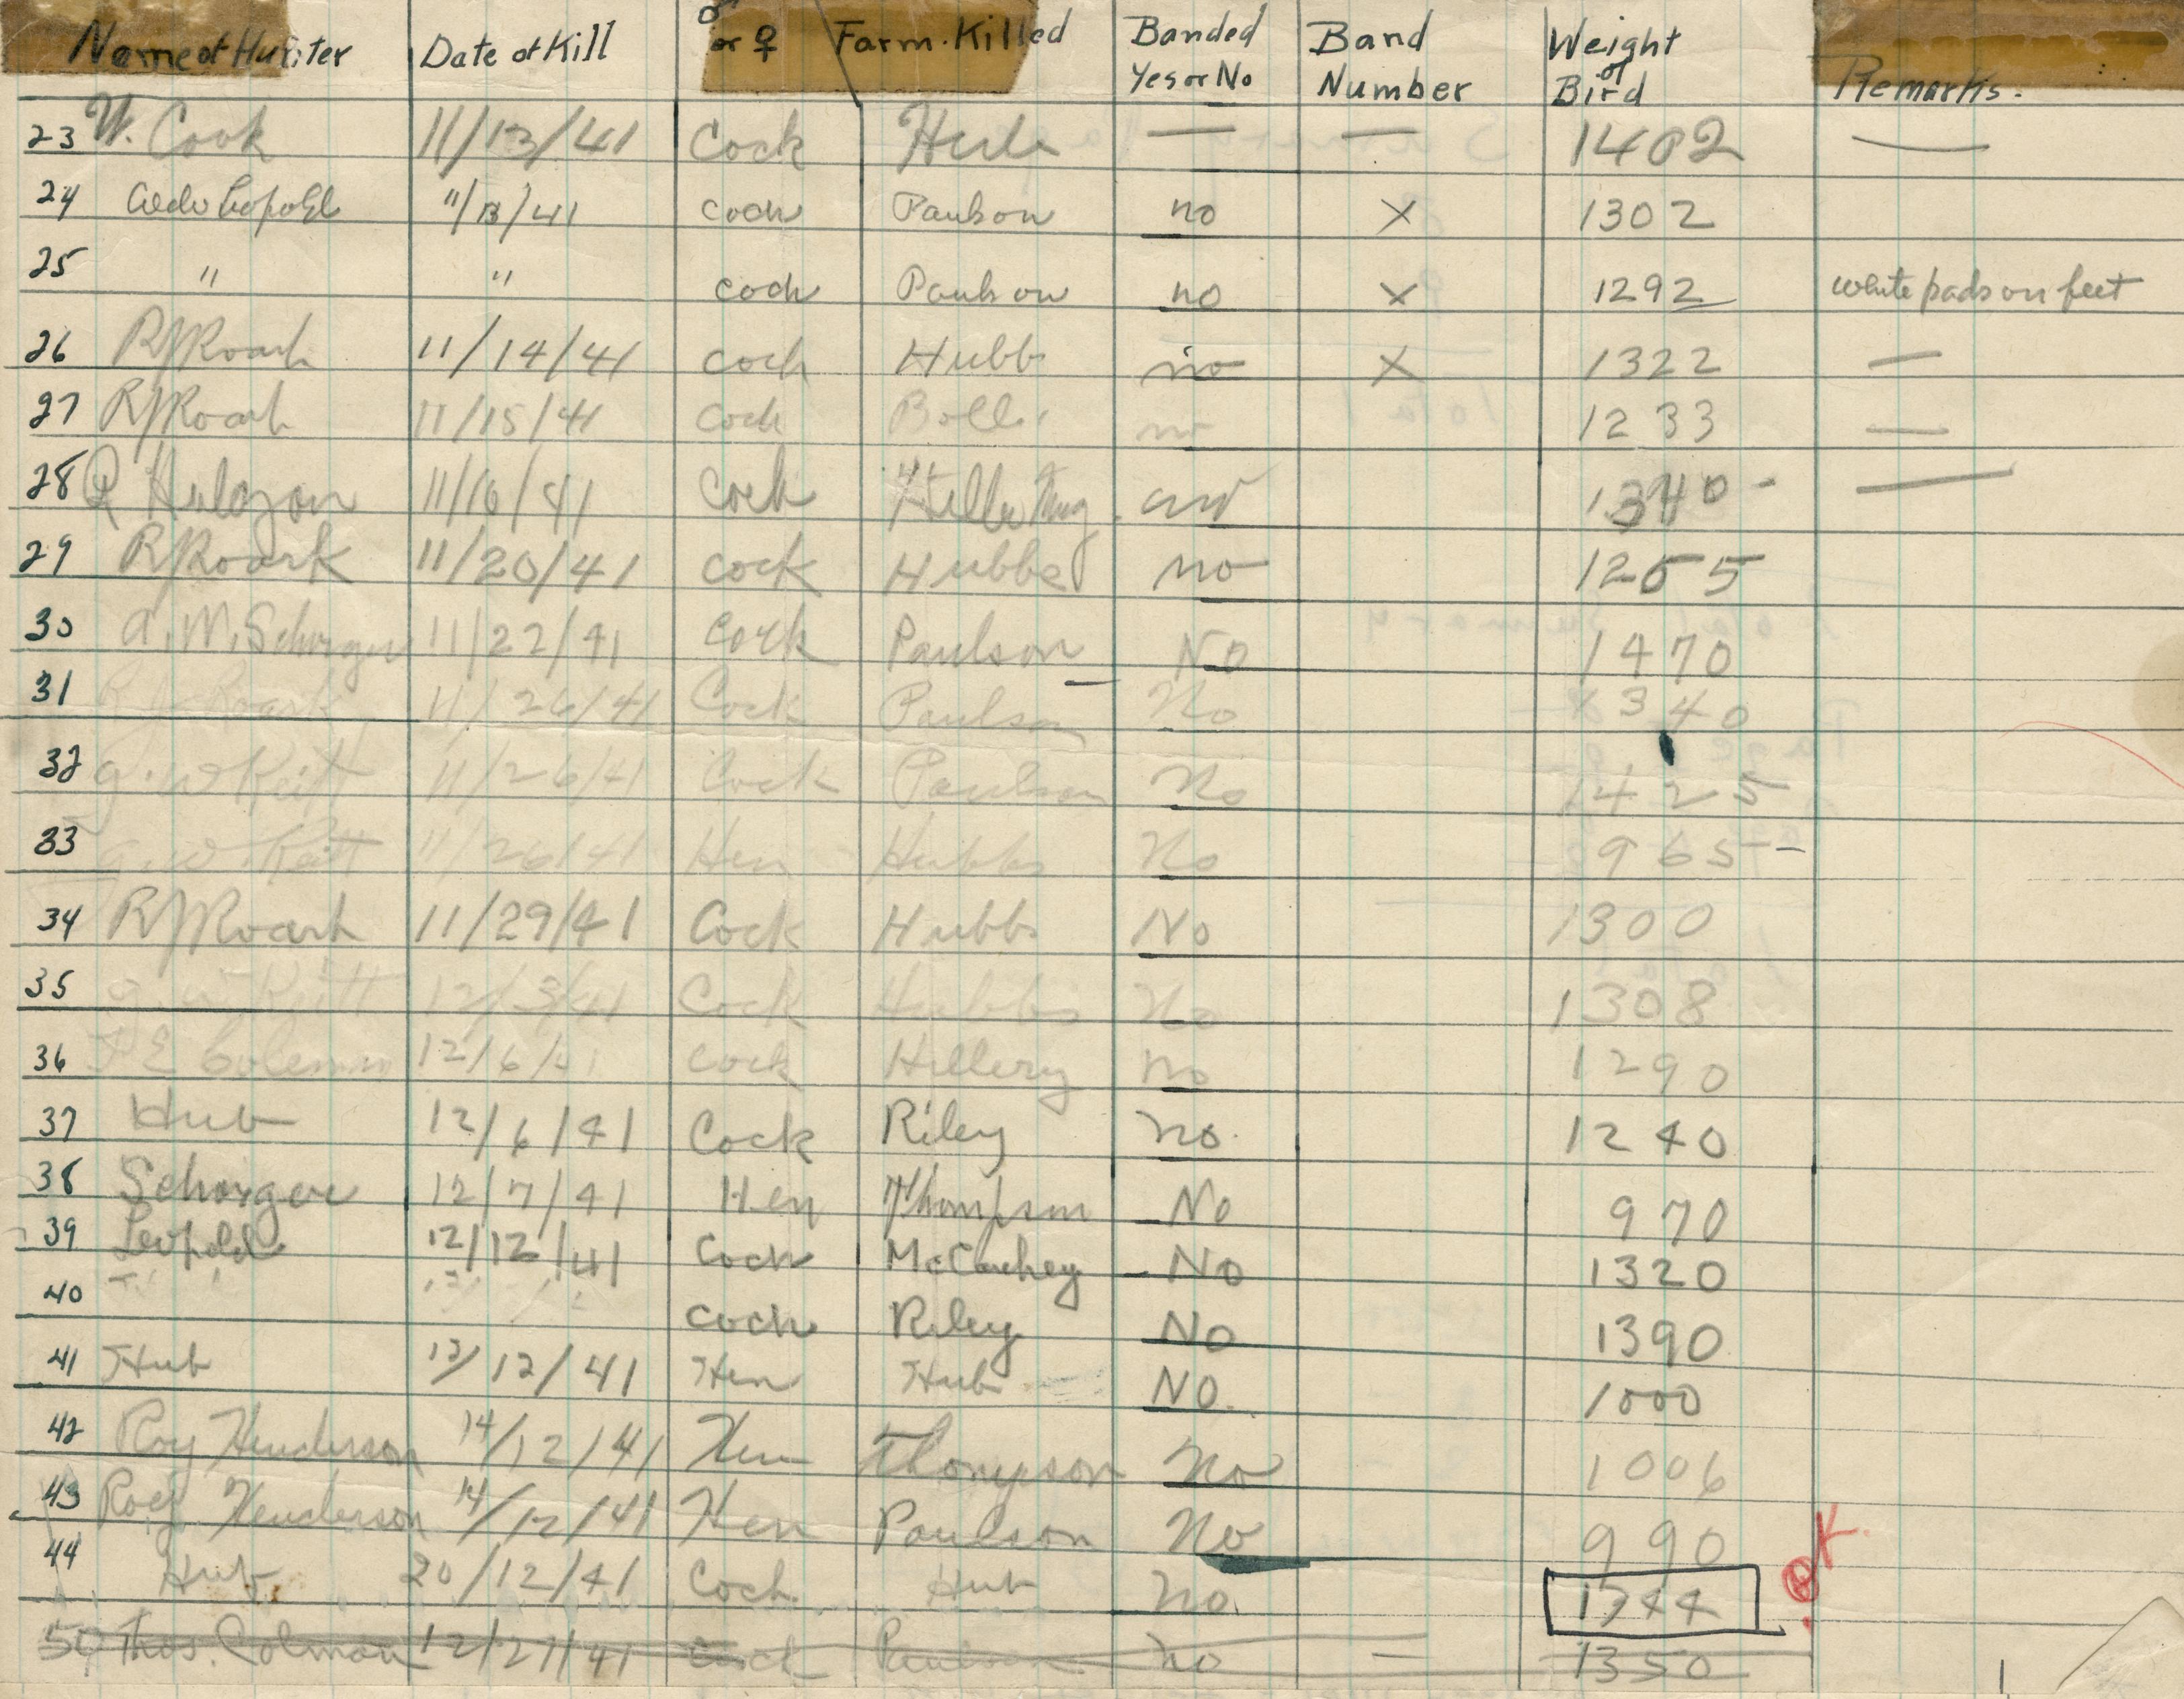 Name of Hunter Date of Kill ♂ or ♀ Farm Killed Banded Yes or No Band Number Weight of Bird Remarks.
23 W. Cook 11/13/41 Cock — — 1402 —
24 Aldo Leopold 11/13/41 cock Paulson no X 1302
25 " " cock Paulson no X 1292 white pads on feet
26 RJRoark 11/14/41 cock Hubb no X 1322 —
27 RJRoark 11/15/41 cock no 1233 —
28 11/16/41 cock 1340 - —
29 RJRoark 11/20/41 cock Hubbs no 1255
30 A. W. Schorger 11/22/41 Cock Paulson No 1470
31 R J Roark 11/26/41 Cock Paulson No 1340
32 G. W Keitt 11/26/41 Cock Paulson No 1425
33 G. W. Keitt 11/26/41 Hen Hubbs No 965 -
34 RJRoark 11/29/41 Cock Hubbs No 1300
35 G. W Keitt 12/3/41 Cock Hubbs No 1308
36 T E Coleman 12/6/41 Cock Hillery no 1290
37 Hub 12/6/41 Cock Riley no. 1240
38 Schorger 12/7/41 Hen Thompson No 970
39 Leopold 12/12/41 Cock McCaughey No 1320
40 Cock Riley No 1390
41 Hub 12/12/41 Hen Hub NO. 1000
42 Roy Henderson 14/12/41 Hen Thompson No 1006
43 Roy Henderson 14/12/41 Hen Paulson No 990
44 Hub 20/12/41 Cock Hub No. 1344 OK.
50 Thos. Colman 12/27/41 Cock Paulson no — 1350